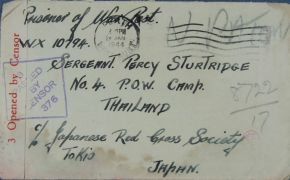 Prisoner of War Post.
NX 10794.
SERGEANT PERCY STURTRIDGE
No. 4. P.O.W. CAMP.
THAILAND
c/o Japanese Red Cross Society
TOKIO
JAPAN.
3 Opened by Censor
PASSED
BY
CENSOR
376
1944
8722
17